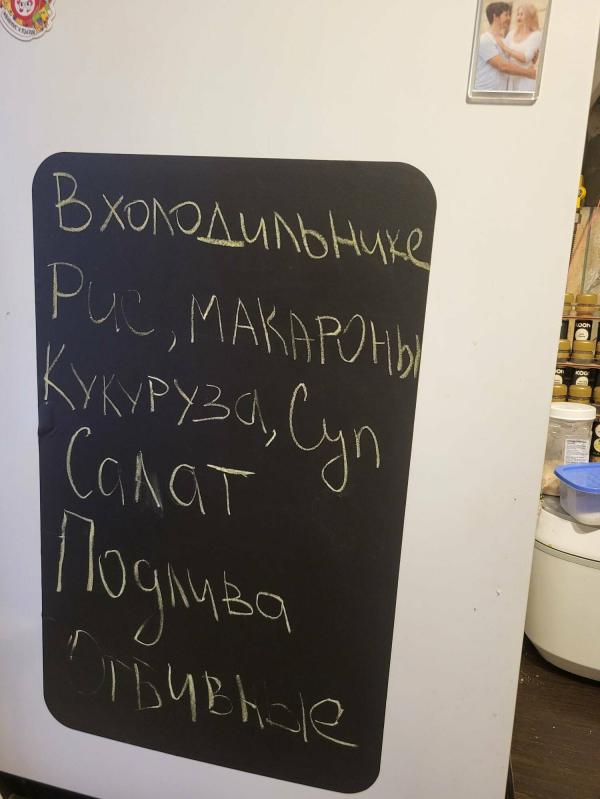 В холодильнике
Рис, макароны
Кукуруза, Суп
Салат
Подлива
Отбивные